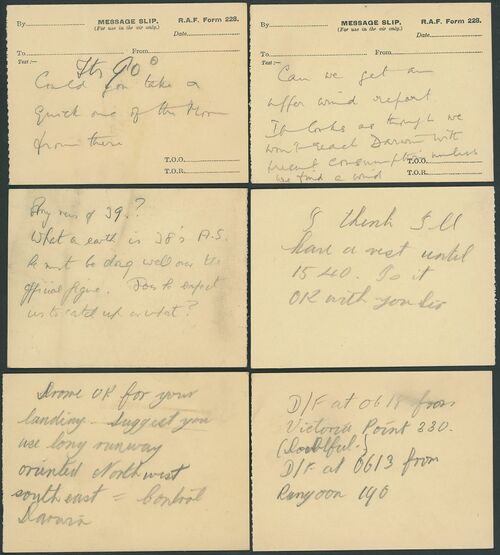 By
MESSAGE SLIP.
(For use in the air only.)
R.A.F. Form 228.
Date
To
From
Text :—
Its 90°
Could you take a
quick one of the Moon
from there
T.O.O.
T.O.R.
By
MESSAGE SLIP.
(For use in the air only.)
R.A.F. Form 228.
Date
To
From
Text :—
Can we get an
upper wind report
It looks as though we
won't reach Darwin with
present consumption unless
we find a wind
T.O.O.
T.O.R.
Any news of 39.?
What on earth is 38's A.S.
he must be doing well over the
official figure. Does he expect
us to catch up or what?
I think I'll
have a rest until
1540. Is it
OK with you Sir
Drome OK for your
landing. Suggest you
use long runway
oriented Northwest
southeast = Control
Darwin
D/F at 0618 from
Victoria Point 330.
(Doubtful)
D/F at 0613 from
Rangoon 190